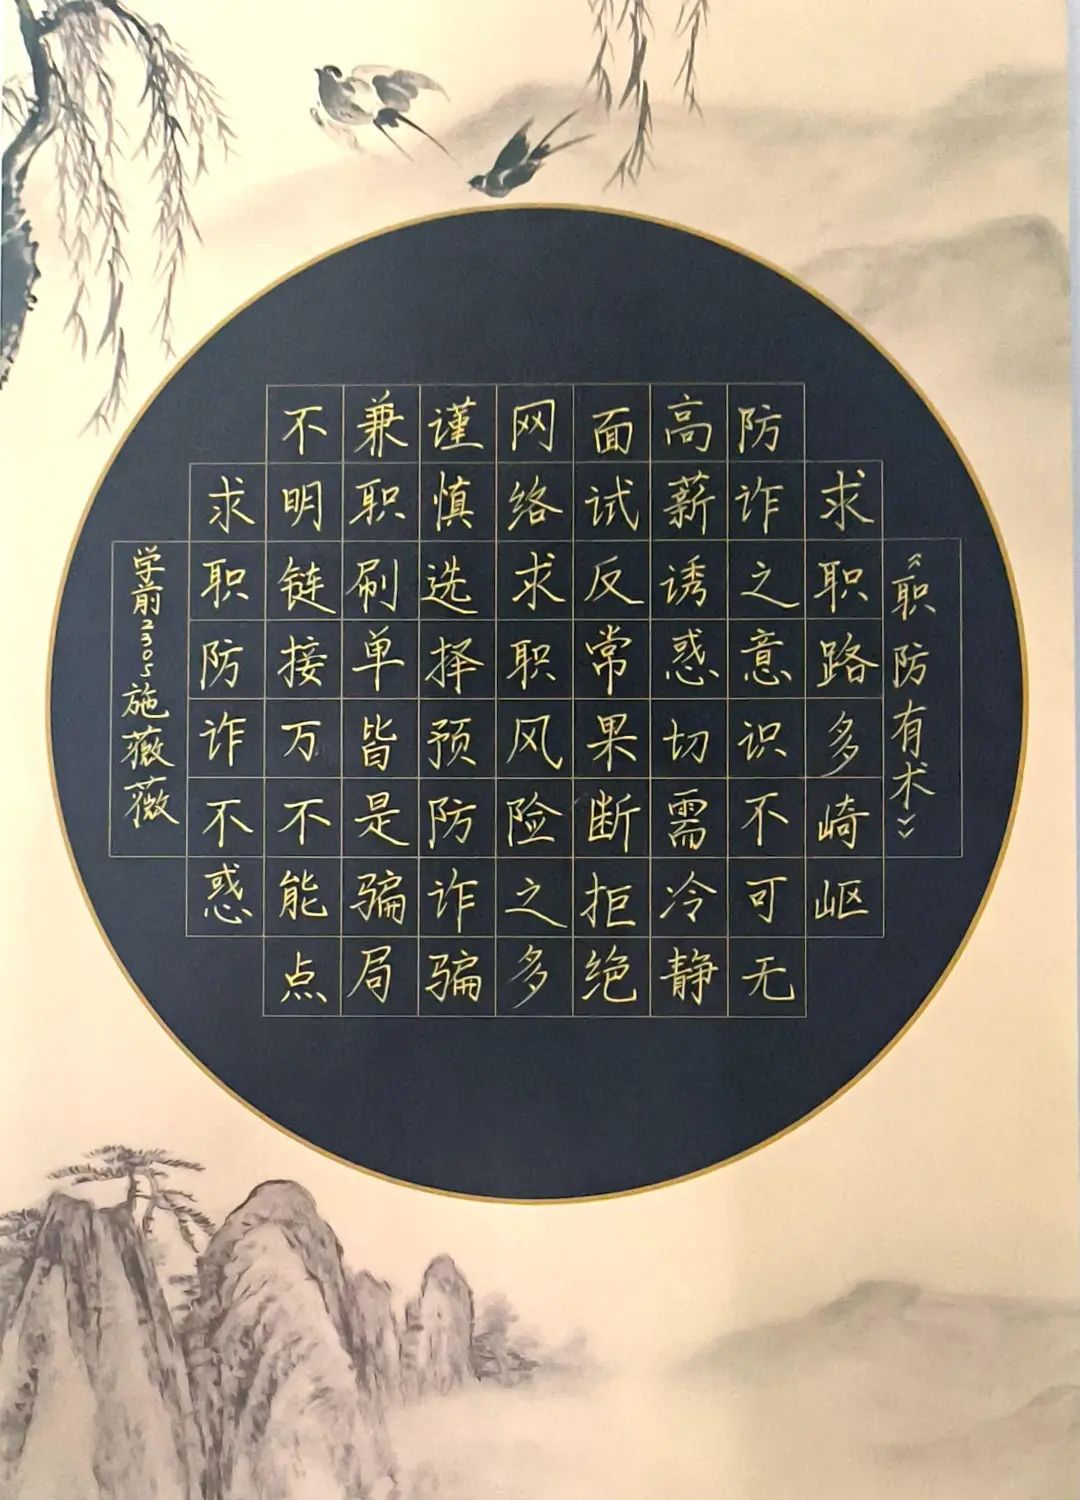 《职防有术》
求职路多崎岖
防诈之意识不可无
高薪诱惑切需冷静
面试反常果断拒绝
网络求职风险之多
谨慎选择预防诈骗
兼职刷单皆是骗局
不明链接万不能点
求职防诈不惑
学前2305施薇薇